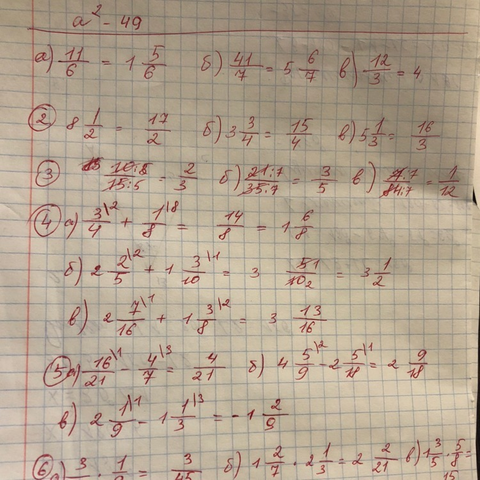 a² - 49
а) 11/6 = 1 5/6 б) 41/7 = 5 6/7 в) 12/3 = 4
② 8 1/2 = 17/2 б) 3 3/4 = 15/4 в) 5 1/3 = 16/3
③ 10:5/15:5 = 2/3 б) 21:7/35:7 = 3/5 в) 7:7/84:7 = 1/12
④ а) 3\2/4 + 1\8/8 = 14/8 = 1 6/8
б) 2 2\2/5 + 1 3\1/10 = 3 51/10 2 = 3 1/2
в) 2 7\1/16 + 1 3\2/8 = 3 13/16
⑤ а) 16\1/21 - 4\3/7 = 4/21 б) 4 5\2/9 - 2 5\1/18 = 2 9/18
в) 2 1\1/9 - 1 1\3/3 = -1 2/9
⑥ а) 3 · 1/9 = 3/45 б) 1 2/7 · 2 1/3 = 2 2/21 в) 1 3/5 · 5/8 =